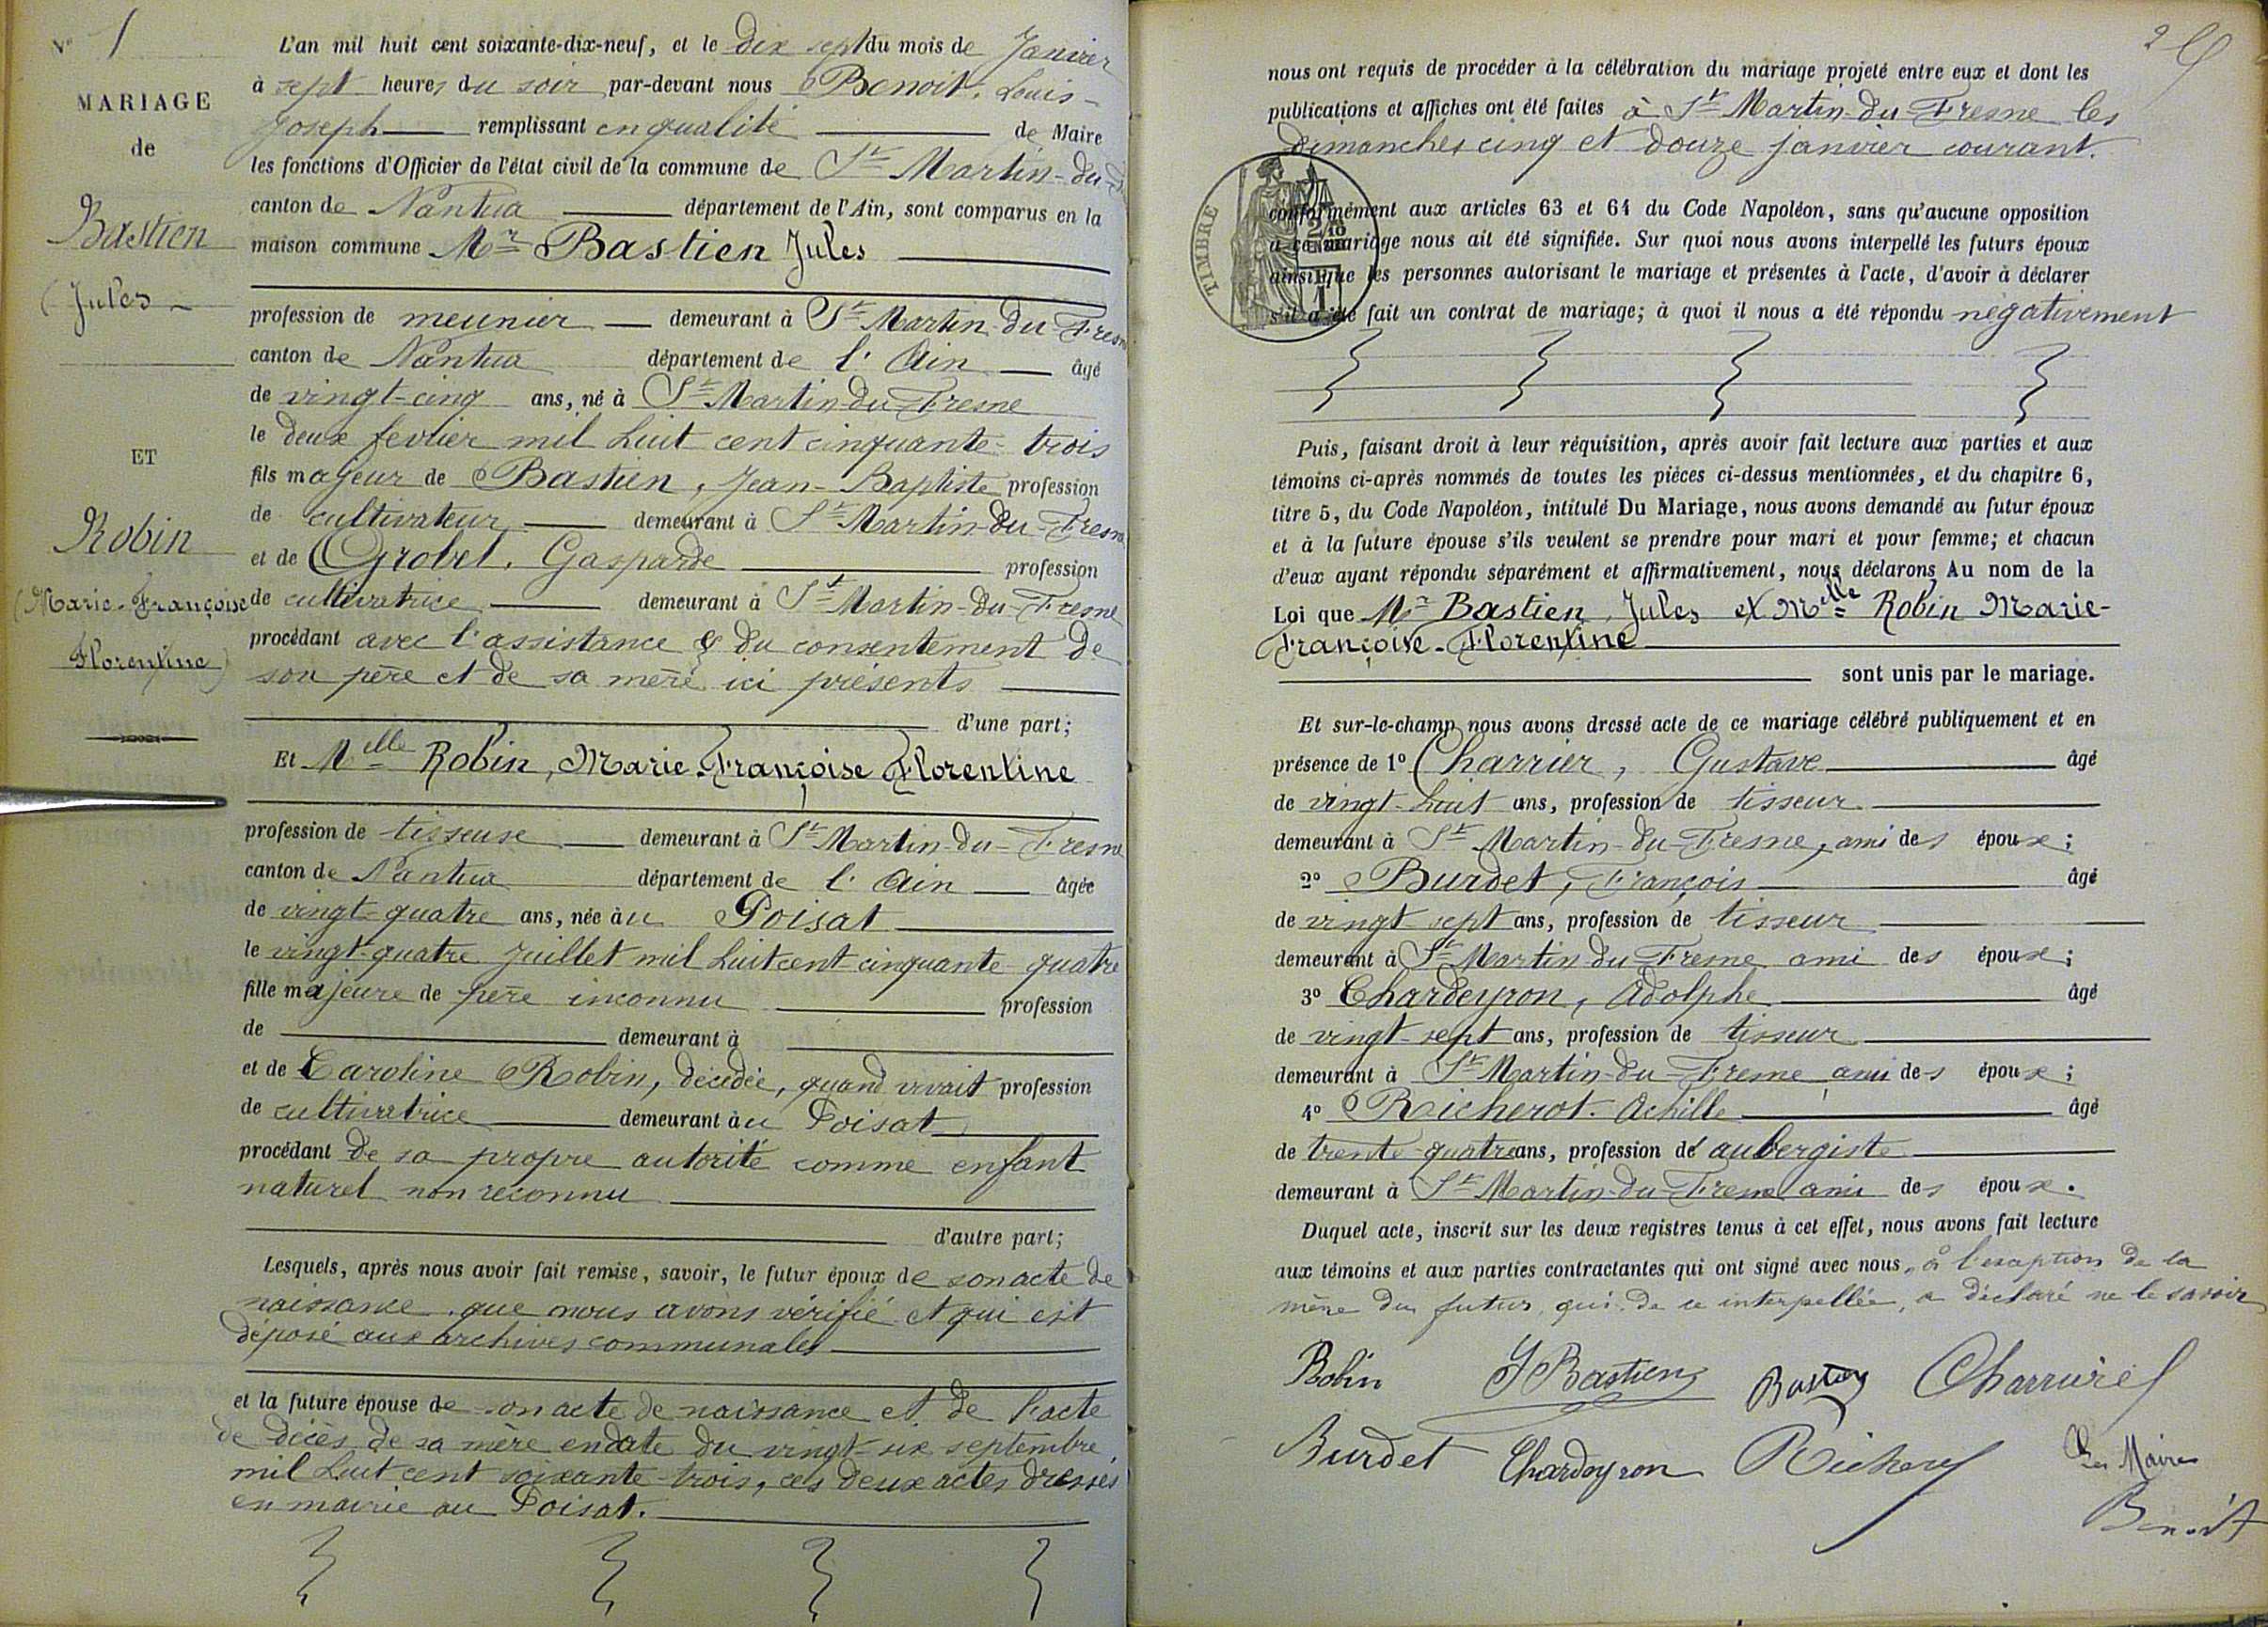 N° 1
MARIAGE
de
Bastien
(Jules
ET
Robin
(Marie-Françoise
Florentine)
L'an mil huit cent soixante-dix-neuf, et le dix sept du mois de Janvier
à sept heures du soir par-devant nous Benoit, Louis-
Joseph remplissant en qualité de Maire
les fonctions d'Officier de l'état civil de la commune de St Martin-du-
canton de Nantua département de l'Ain, sont comparus en la
maison commune Mr Bastien Jules
profession de meunier demeurant à St Martin-du Fresne
canton de Nantua département de l'Ain âgé
de vingt-cinq ans, né à St Martin-du-Fresne
le deux fevrier mil huit cent cinquante-trois
fils majeur de Bastien, Jean-Baptiste profession
de cultivateur demeurant à St Martin-du-Fresne
et de Grobel, Gasparde profession
de cultivatrice demeurant à St Martin-du-Fresne
procédant avec l'assistance & du consentement de
son père et de sa mère ici présents
d'une part;
Et Melle Robin, Marie-Françoise Florentine
profession de tisseuse demeurant à St Martin-du-Fresne
canton de Nantua département de l'Ain âgée
de vingt-quatre ans, née au Poisat
le vingt-quatre juillet mil huit cent cinquante quatre
fille majeure de père inconnu profession
de demeurant à
et de Caroline Robin, décedée, quand vivait profession
de cultivatrice demeurant au Poisat
procédant de sa propre autorité comme enfant
naturel non reconnu
d'autre part;
Lesquels, après nous avoir fait remise, savoir, le futur époux de son acte de
naissance que nous avons vérifié et qui est
déposé aux archives communales
et la future épouse de son acte de naissance et de l'acte
de décès de sa mère en date du vingt-six septembre
mil huit cent soixante-trois, ces deux actes dressés
en mairie au Poisat.
2
nous ont requis de procéder à la célébration du mariage projeté entre eux et dont les
publications et affiches ont été faites à St Martin-du-Fresne les
dimanches cinq et douze janvier courant.
TIMBRE
conformément aux articles 63 et 64 du Code Napoléon, sans qu'aucune opposition
à ce mariage nous ait été signifiée. Sur quoi nous avons interpellé les futurs époux
ainsi que les personnes autorisant le mariage et présentes à l'acte, d'avoir à déclarer
s'il a été fait un contrat de mariage; à quoi il nous a été répondu négativement
Puis, faisant droit à leur réquisition, après avoir fait lecture aux parties et aux
témoins ci-après nommés de toutes les pièces ci-dessus mentionnées, et du chapitre 6,
titre 5, du Code Napoléon, intitulé Du Mariage, nous avons demandé au futur époux
et à la future épouse s'ils veulent se prendre pour mari et pour femme; et chacun
d'eux ayant répondu séparément et affirmativement, nous déclarons Au nom de la
Loi que Mr Bastien, Jules et Melle Robin Marie-
Françoise-Florentine
sont unis par le mariage.
Et sur-le-champ nous avons dressé acte de ce mariage célébré publiquement et en
présence de 1° Charrier, Gustave âgé
de vingt-huit ans, profession de tisseur
demeurant à St Martin-du-Fresne, ami des époux;
2° Burdet, François âgé
de vingt sept ans, profession de tisseur
demeurant à St Martin du Fresne ami des époux;
3° Chardeyron, Adolphe âgé
de vingt-sept ans, profession de tisseur
demeurant à St Martin-du-Fresne ami des époux;
4° Richerot. Achille âgé
de trente-quatre ans, profession de aubergiste
demeurant à St Martin-du-Fresne ami des époux.
Duquel acte, inscrit sur les deux registres tenus à cet effet, nous avons fait lecture
aux témoins et aux parties contractantes qui ont signé avec nous, à l'exception de la
mère du futur, qui de ce interpellée, a déclaré ne le savoir
Robin J Bastien Bastien Charrier
Burdet Chardeyron Richerot Le Maire
Benoit